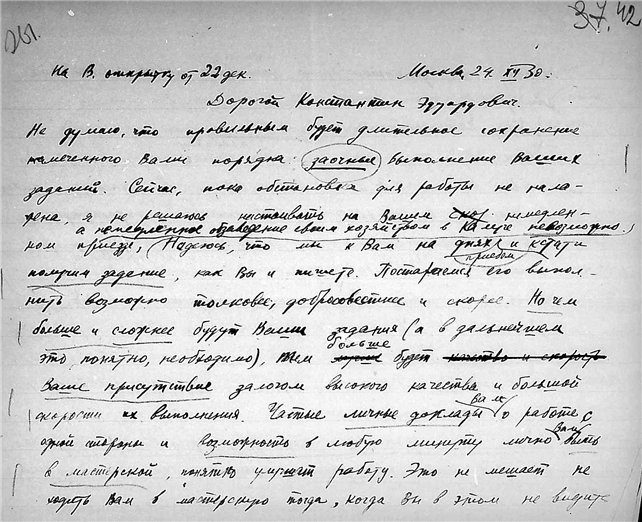 261.
37.42
На В. открытку от 22 дек. Москва 24 XII 30.
Дорогой Константин Эдуардович.
Не думаю, что правильным будет длительное сохранение
намеченного Вами порядка: заочные выполнение Ваших
заданий. Сейчас, пока обстановка для работы не нала-
жена, я не решаюсь настаивать на Вашем немедлен-
а немедленное обзаведение своим хозяйством в Калуге невозможно,
ном приезде, Надеюсь, что мы к Вам на днях и кстати
приедом
получим задание, как Вы и пишете. Постараемся его выпол-
нить возможно толковее, добросовестнее и скорее. Но чем
больше и сложнее будут Ваши задания (а в дальнейшем
больше
это, понятно, необходимо), тем будет качество и скорость
Ваше присутствие залогом высокого качества и большой
скорости их выполнения. Частые личные доклады Вам о работе с
одной стороны и возможность в любую минуту лично Вам быть
в мастерской, понятно улучшит работу. Это не мешает не
ходить Вам в мастерскую тогда, когда Вы в этом не видите